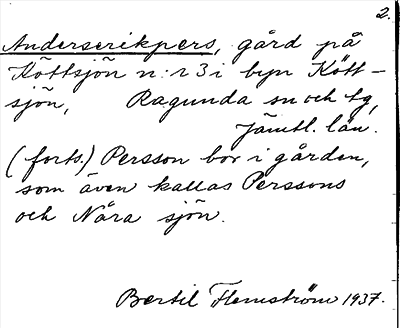 2.
Anderserikpers, gård på
Köttsjön n:r 3 i byn Kött-
sjön, Ragunda sn och tg,
Jämtl. län.
(forts.) Persson bor i gården,
som även kallas Perssons
och Nåra sjön.
Bertil Flemström 1937.